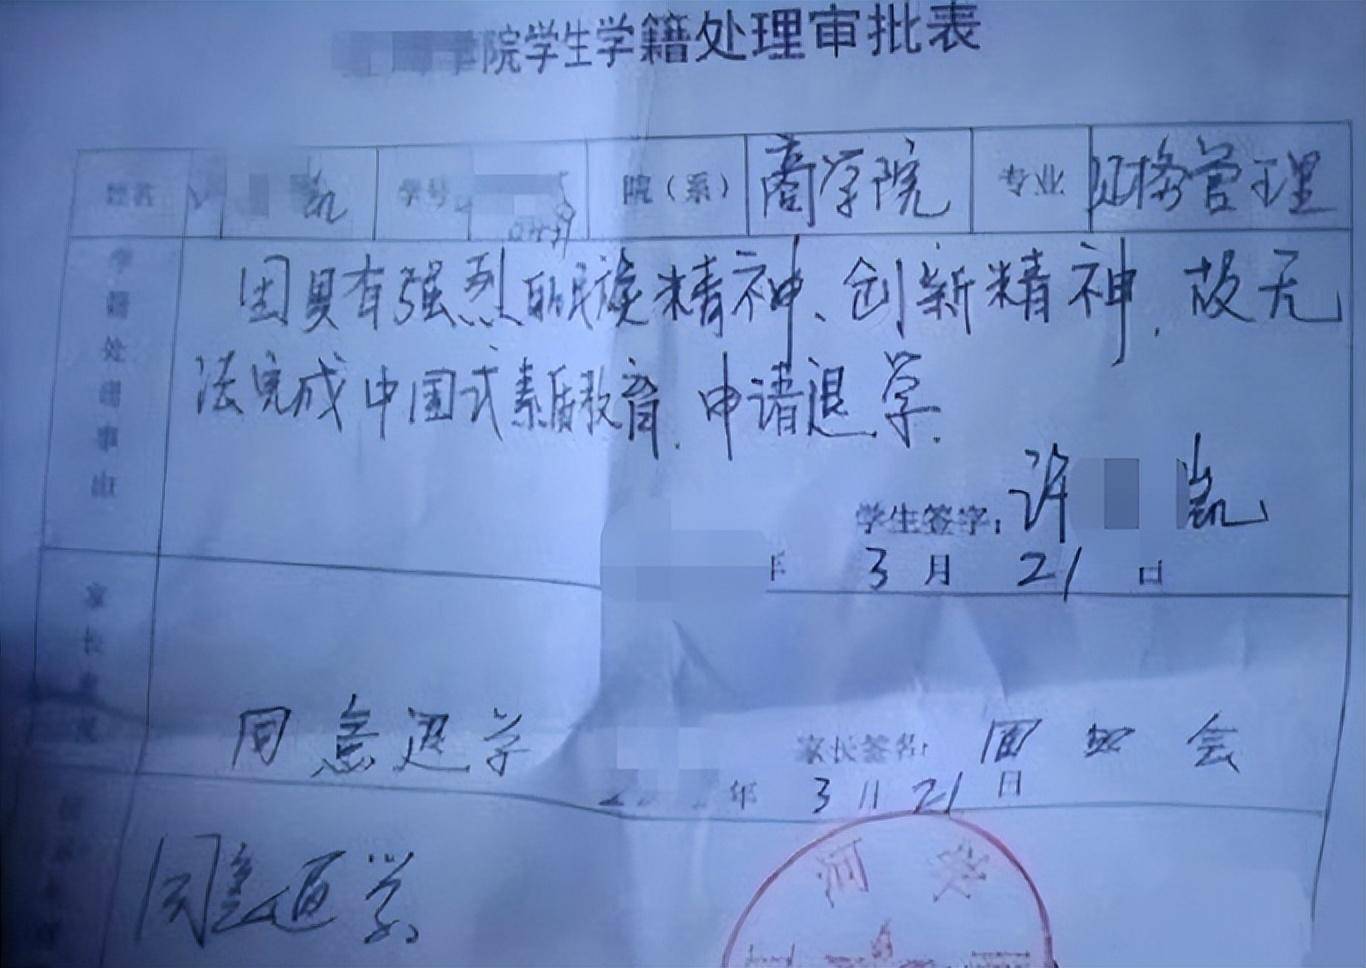 院学生学籍处理审批表
姓名 凯 学号 院（系） 商学院 专业 财务管理
学籍处理事由
因具有强烈的民族精神、创新精神，故无
法完成中国式素质教育，申请退学。
学生签字：许 凯
年 3月 21日
家长意见
同意退学
家长签名：
年 3月 21日
同意退学
河